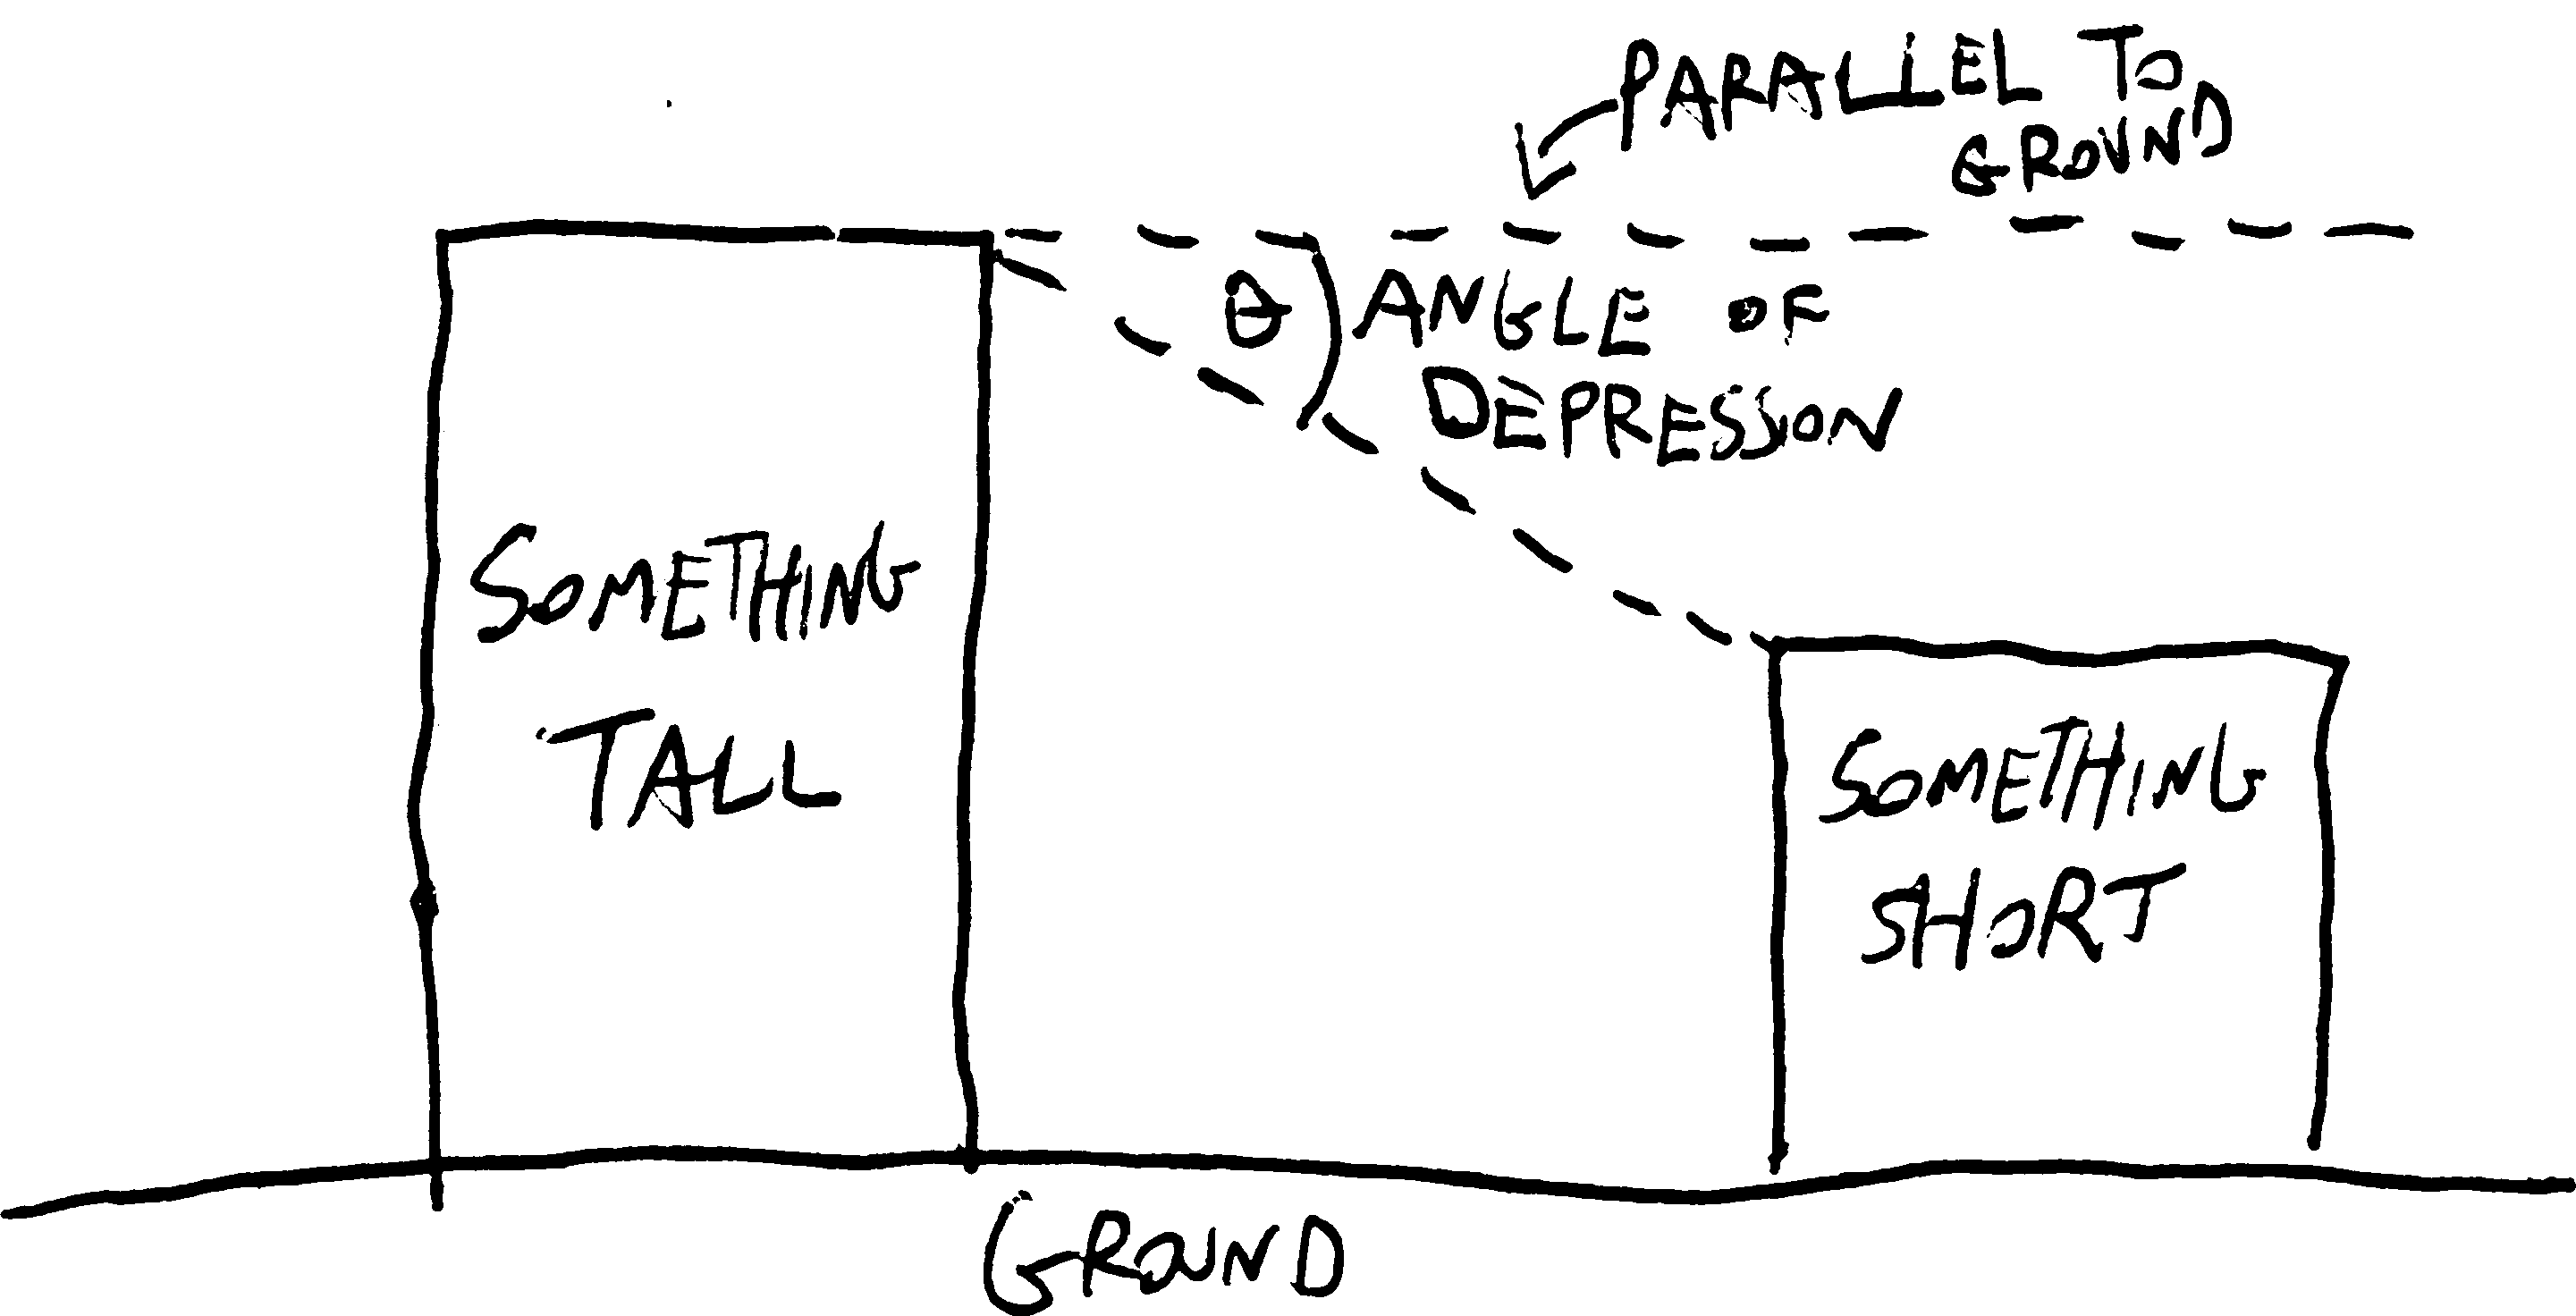 PARALLEL TO
GROUND
θ
ANGLE OF
DEPRESSION
SOMETHING
TALL
SOMETHING
SHORT
GROUND